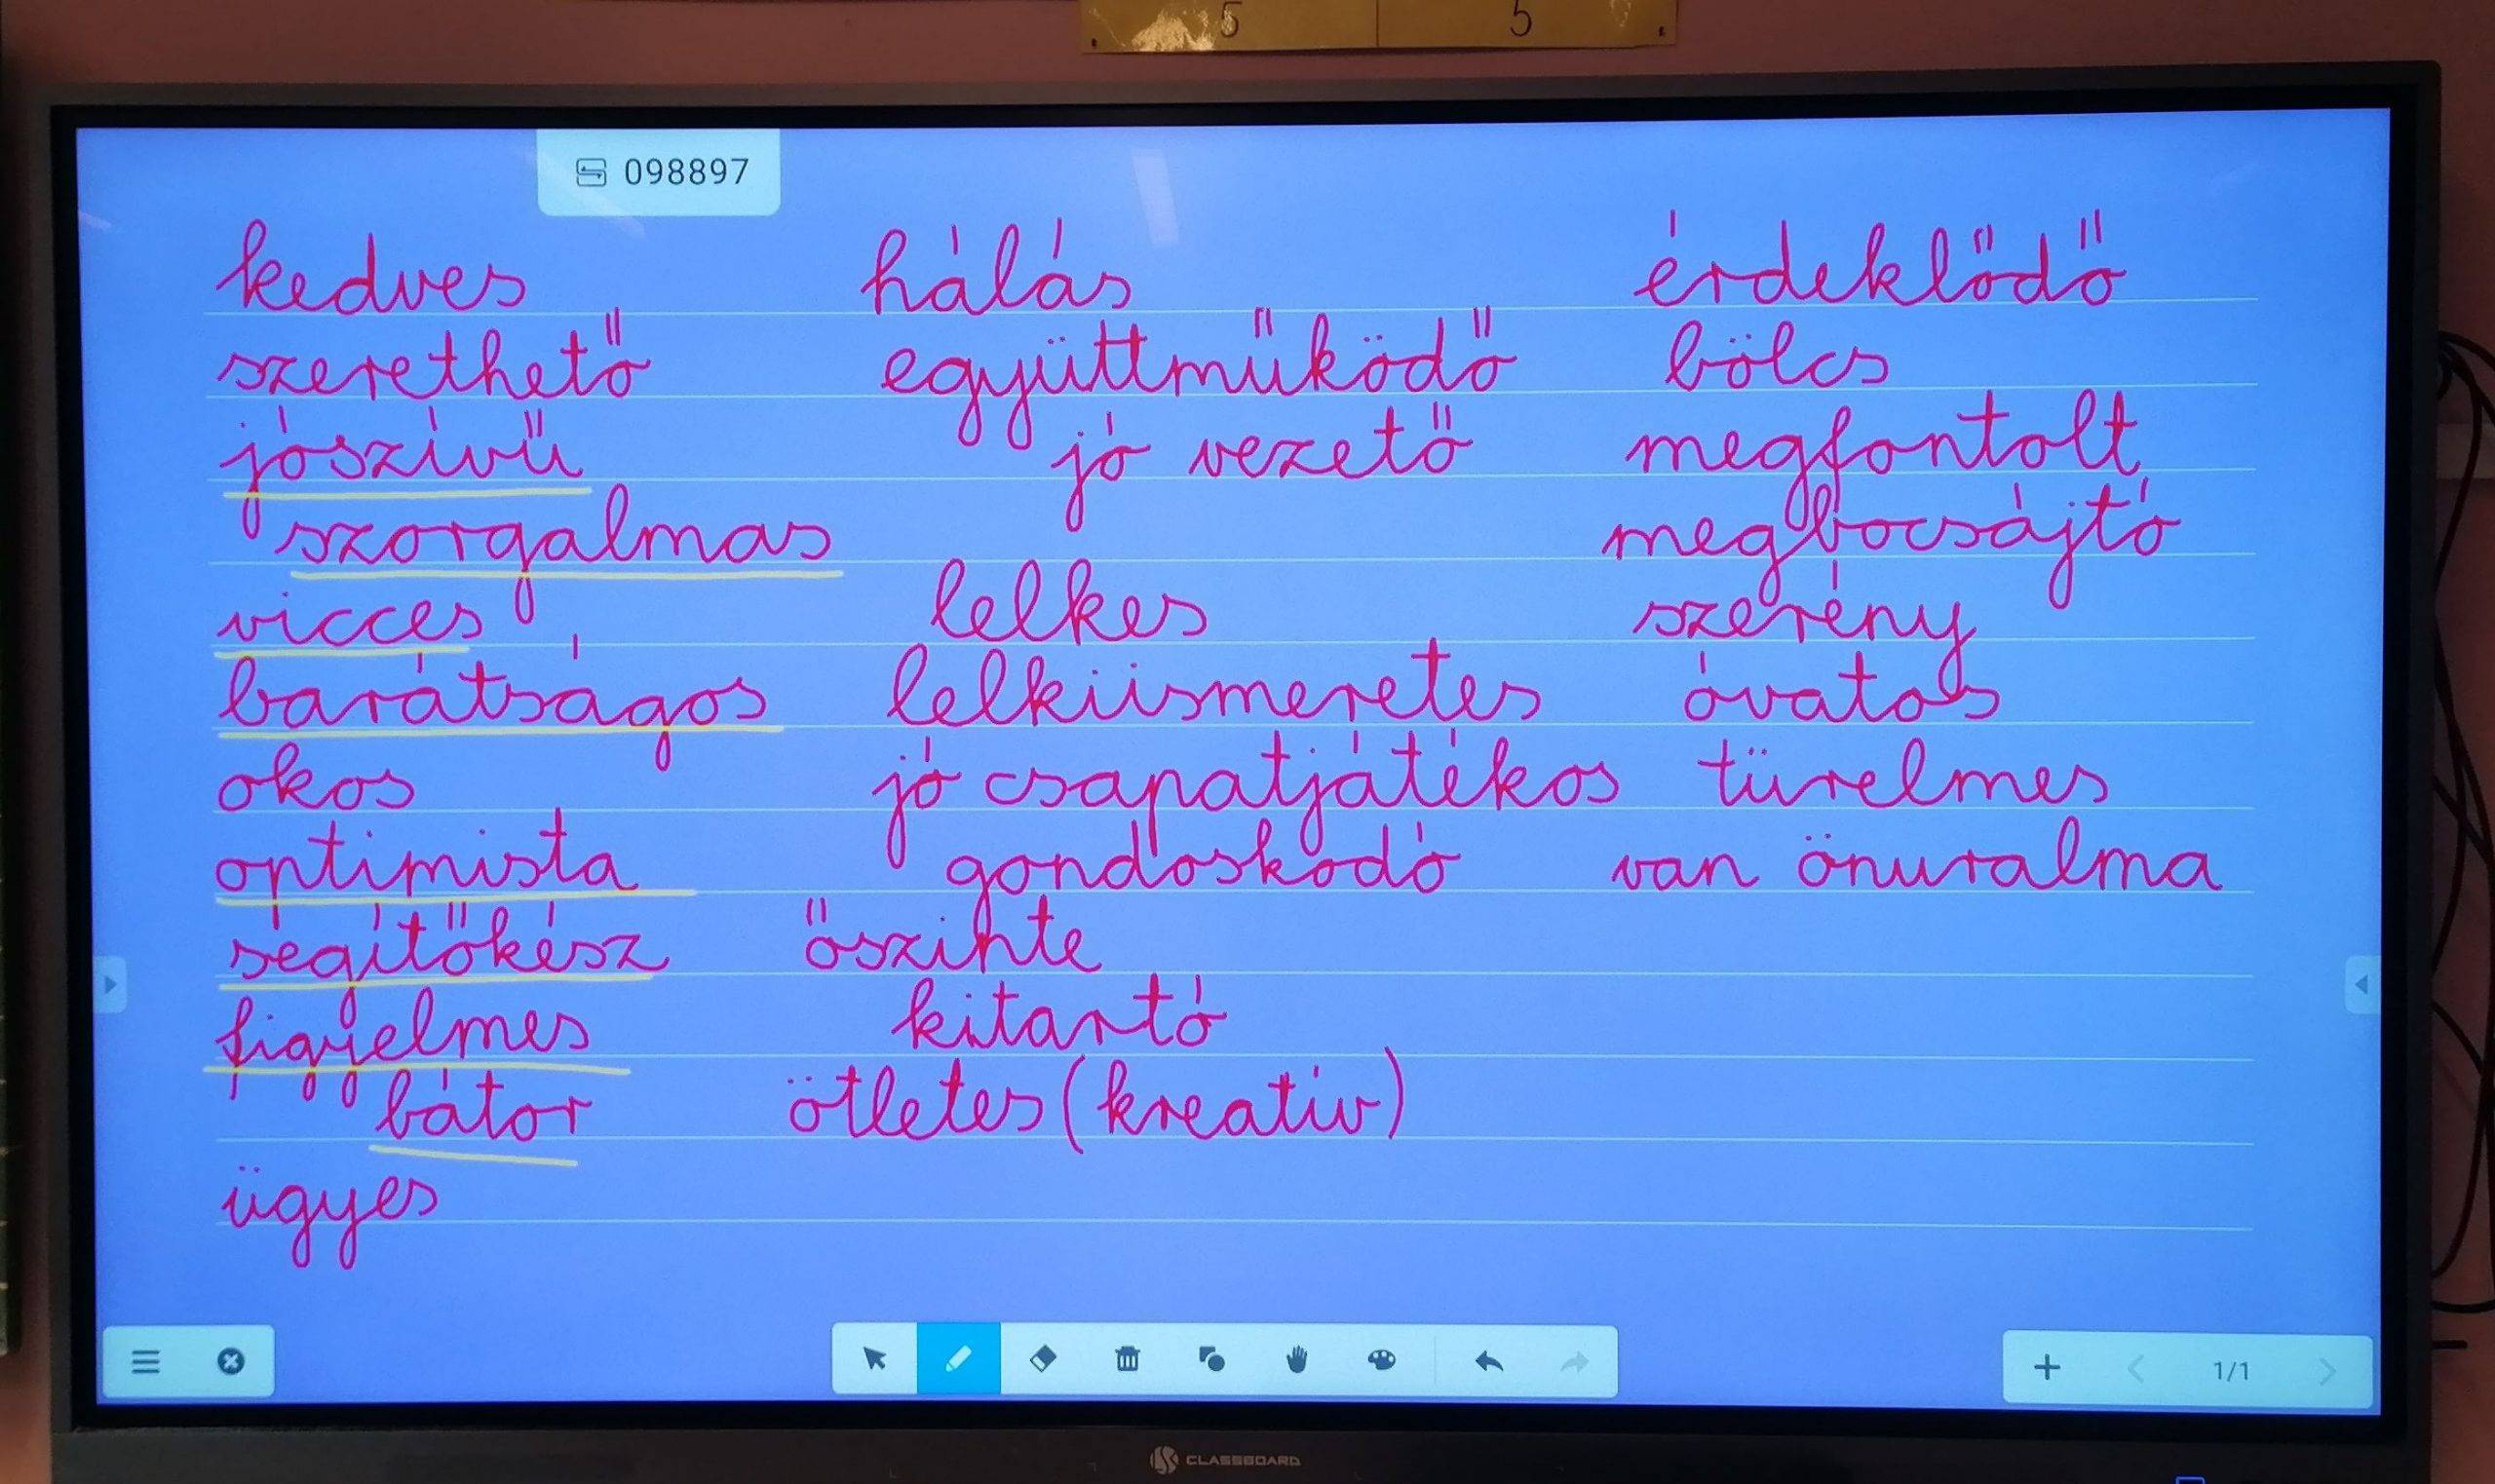 5 5
098897
kedves
szerethető
jószívű
szorgalmas
vicces
barátságos
okos
optimista
segítőkész
figyelmes
bátor
ügyes
hálás
együttműködő
jó vezető
lelkes
lelkiismeretes
jó csapatjátékos
gondoskodó
őszinte
kitartó
ötletes (kreatív)
érdeklődő
bölcs
megfontolt
megbocsájtó
szerény
óvatos
türelmes
van önuralma
1/1
CLASSBOARD